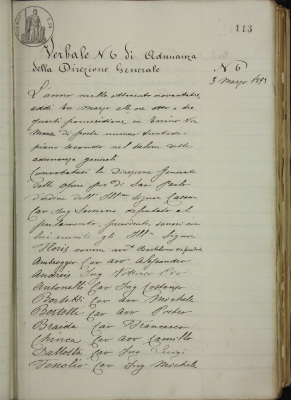 113
Verbale N 6 di Adunanza
della Direzione Generale
N. 6
3 Marzo 1893
L'anno mille ottocento novantatre
addì tre marzo alle ore otto e tre
quarti pomeridiane in Torino Via
Monte di pietà numero trentadue
piano secondo nel salone delle
adunanze generali
Convocatasi la Direzione Generale
delle opere pie di San Paolo
d'ordine dell' Ill.mo signor
Cav Ing Severino deputato al
parlamento, presidente, sonosi
gli Ill.mi Signori
Floris comm avv.
Ambrogger Cav avv Alessandro
Andreis Ing
Antonelli Cav Ing Costanzo
Bertetti Cav avv Michele
Bertotti Cav avv Pietro
Braida Cav Francesco
Chiesa Cav avv Camillo
Dallosta Cav Ing Luigi
Fenolio Cav Ing Michele